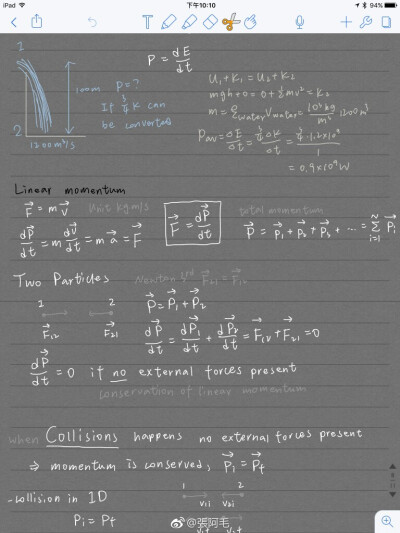 iPad
下午10:10
94%
1
P = dE/dt
100m P=?
If 3/4 K can
be converted
2
1200m³/s
U₁+K₁ = U₂+K₂
mgh+0 = 0+½mv² = K₂
m = ρwater Vwater = 10³kg/m³ 1200m³
Pav = ΔE/Δt = ¾ΔK/Δt = ¾·1.2×10⁹/1
= 0.9×10⁹W
Linear momentum
F = mv unit kg m/s
dP/dt = m dv/dt = ma = F
F = dP/dt
total momentum
P = P₁ + P₂ + P₃ + ... = Σ Pᵢ
Two Particles Newton 3rd F₂₁ = F₁₂
1 2
F₁₂ F₂₁
P = P₁ + P₂
dP/dt = dP₁/dt + dP₂/dt = F₁₂ + F₂₁ = 0
dP/dt = 0 if no external forces present
conservation of linear momentum
when Collisions happens no external forces present
⇒ momentum is conserved, Pi = Pf
-collision in 1D
1 2
v₁i v₂i
Pi = Pf
@張阿毛